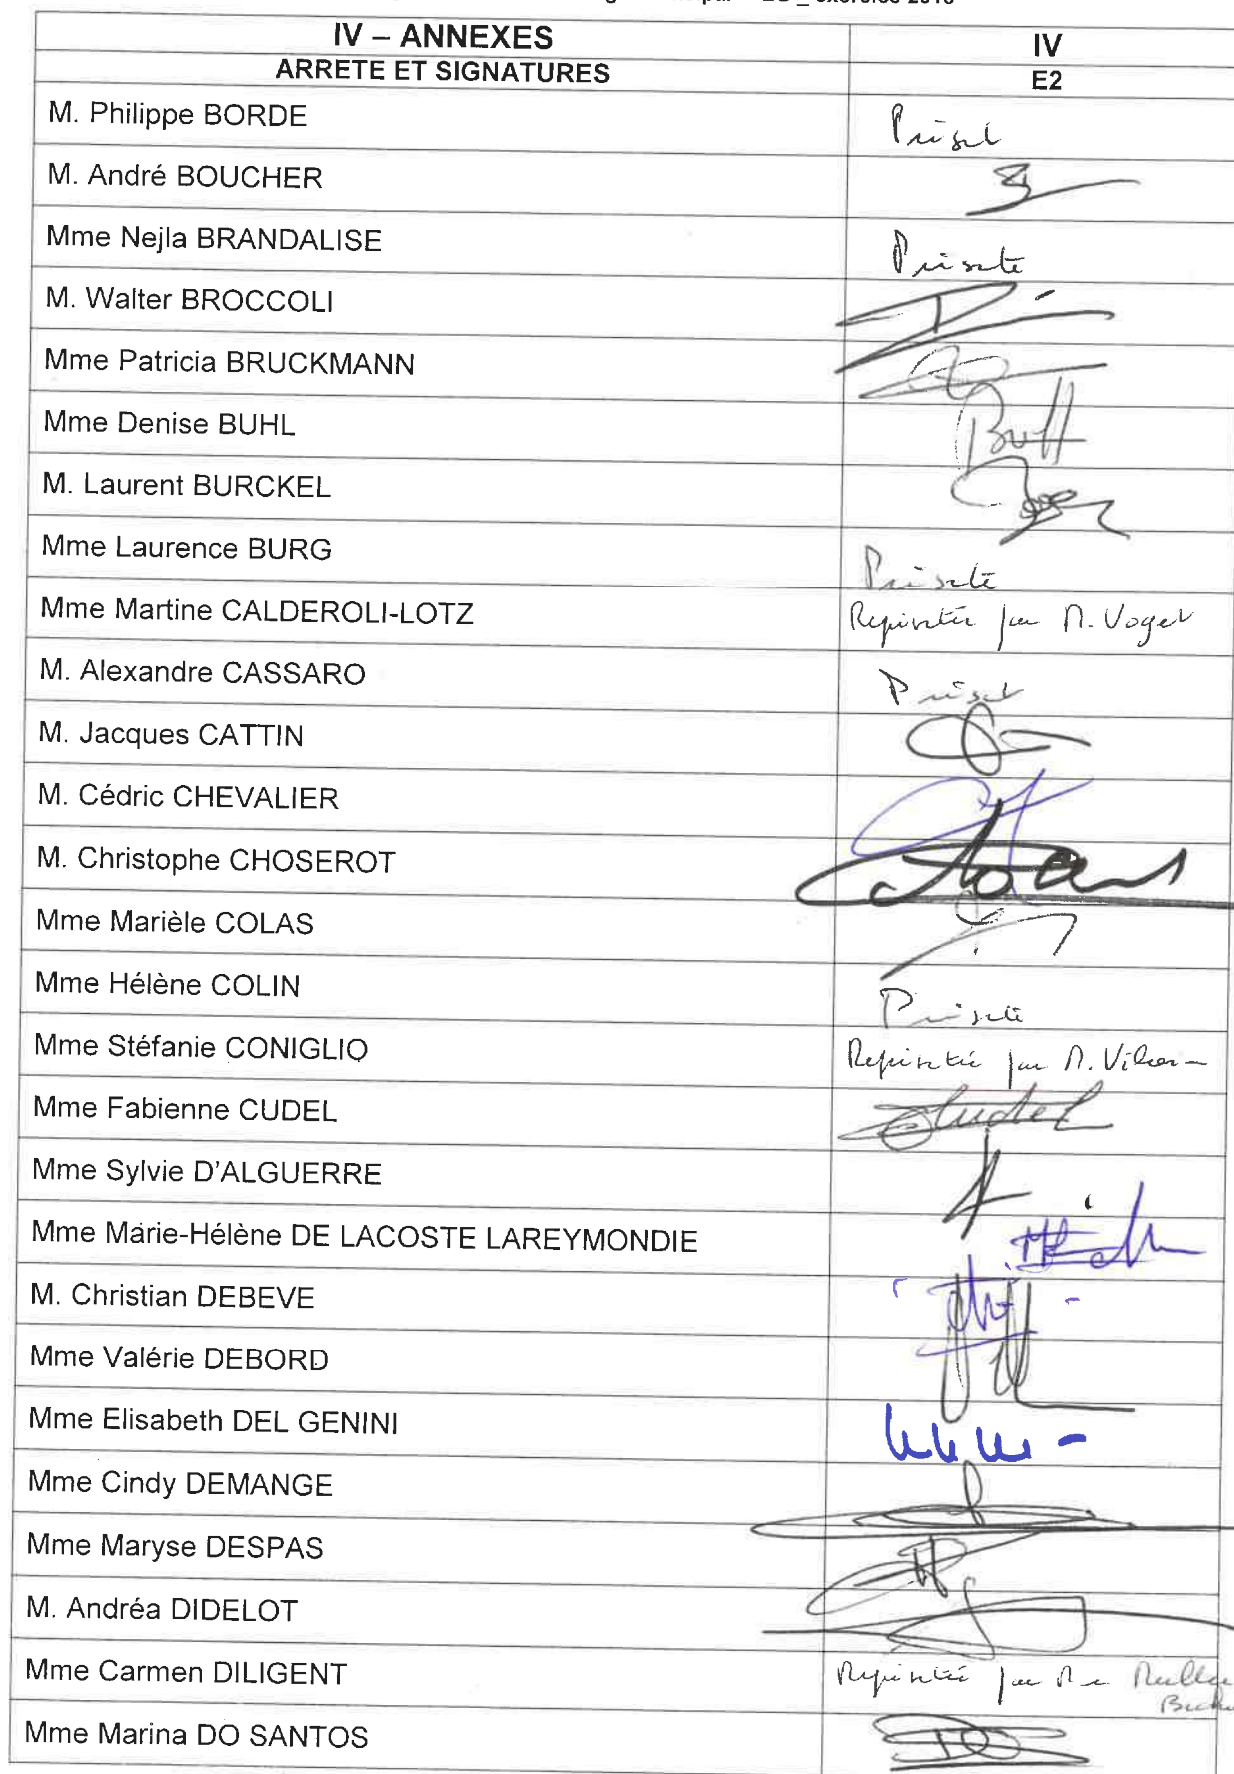 exercice 2016
IV – ANNEXES IV
ARRETE ET SIGNATURES E2
M. Philippe BORDE Présent
M. André BOUCHER
Mme Nejla BRANDALISE Présente
M. Walter BROCCOLI
Mme Patricia BRUCKMANN
Mme Denise BUHL
M. Laurent BURCKEL
Mme Laurence BURG Présente
Mme Martine CALDEROLI-LOTZ Représentée par M. Vogel
M. Alexandre CASSARO Présent
M. Jacques CATTIN
M. Cédric CHEVALIER
M. Christophe CHOSEROT
Mme Marièle COLAS
Mme Hélène COLIN Présente
Mme Stéfanie CONIGLIO Représentée par M.
Mme Fabienne CUDEL Cudel
Mme Sylvie D'ALGUERRE
Mme Marie-Hélène DE LACOSTE LAREYMONDIE
M. Christian DEBEVE
Mme Valérie DEBORD
Mme Elisabeth DEL GENINI
Mme Cindy DEMANGE
Mme Maryse DESPAS
M. Andréa DIDELOT
Mme Carmen DILIGENT Représentée par
Mme Marina DO SANTOS